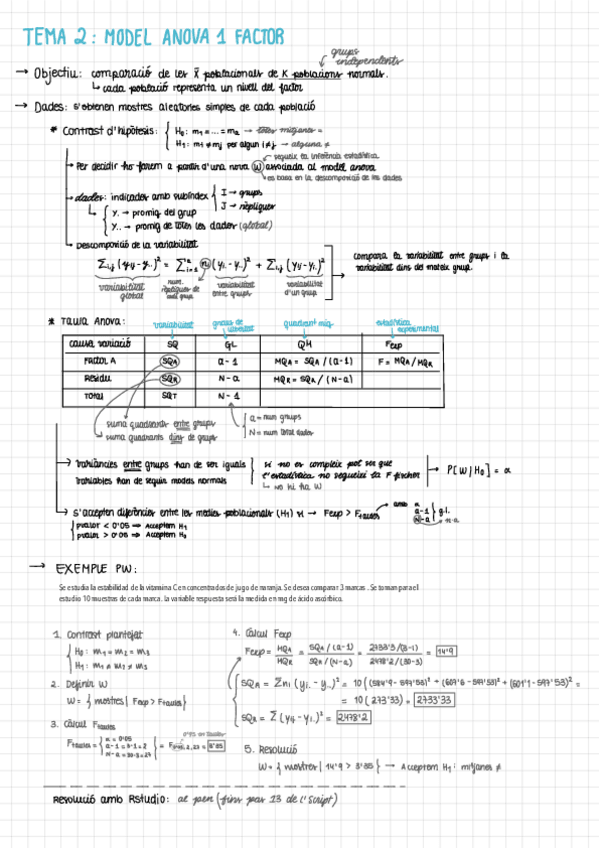 TEMA 2: MODEL ANOVA 1 FACTOR
grups independents
→ Objectiu: comparació de les x̄ poblacionals de K poblacions normals.
↳ cada població representa un nivell del factor
→ Dades: s'obtenen mostres aleatories simples de cada població
* Contrast d'hipòtesis: { H₀: m₁ = ... = mₐ → totes mitjanes =
H₁: mi ≠ mj per algun i≠j → alguna ≠
segueix la inferència estadística
→ Per decidir ho farem a partir d'una nova W associada al model anova
es basa en la descomposició de les dades
→ dades: indicador amb subíndex { I → grups
J → rèpliques
↳ { y. → promig del grup
y.. → promig de totes les dades (global)
↳ Descomposició de la variabilitat
Σi,j (yij - y..)² = Σᵃi=1 ni (yi. - y..)² + Σi,j (yij - yi.)²
compara la variabilitat entre grups i la
variabilitat dins del mateix grup.
variabilitat global
num. rèpliques de cada grup
variabilitat entre grups
variabilitat d'un grup
* Taula Anova:
variabilitat
graus de llibertat
quadrant mig
estadístic experimental
causa variació SQ GL QM Fexp
Factor A SQA a-1 MQA = SQA / (a-1) F = MQA/MQR
Residu SQR N-a MQR = SQR / (N-a)
Total SQT N-1
suma quadrants entre grups
suma quadrants dins de grups
{ a = num grups
N = num total dades
→ Variàncies entre grups han de ser iguals
Variables han de seguir modes normals
si no es compleix pot ser que
l'estadística no segueixi la F fischer
↳ no hi ha W
→ P[W/H₀] = α
↳ S'accepten diferències entre les medies poblacionals (H₁) si → Fexp > Ftaules
amb α
a-1
N-a } g.l.
{ pvalor < 0'05 ⇒ Acceptem H₁
pvalor > 0'05 ⇒ Acceptem H₀
→ EXEMPLE PW:
Se estudia la estabilidad de la vitamina C en concentrados de jugo de naranja. Se desea comparar 3 marcas . Se toman para el
estudio 10 muestras de cada marca. la variable respuesta será la medida en mg de ácido ascórbico.
1. Contrast plantejat
{ H₀: m₁ = m₂ = m₃
H₁: m₁ ≠ m₂ ≠ m₃
2. Definir W
W = { mostres | Fexp > Ftaules }
3. Càlcul Ftaules
Ftaules = { α = 0'05
a-1 = 3-1 = 2
N-a = 30-3 = 27 } = F0'05, 2, 27 = 3'35
4. Càlcul Fexp
Fexp = MQA / MQR = SQA / (a-1) / SQR / (N-a) = 2733'3 / (3-1) / 2478'2 / (30-3) = 14'9
SQA = Σni (yi. - y..)² = 10 ((584'9 - 597'53)² + (607'6 - 597'53)² + (601'1 - 597'53)² =
= 10 (273'33) = 2733'33
SQR = Σ (yij - yi.)² = 2478'2
5. Resolució
W = { mostres | 14'9 > 3'35 } → Acceptem H₁: mitjanes ≠
Resolució amb Rstudio: al pen (fins pas 13 de l'Script)